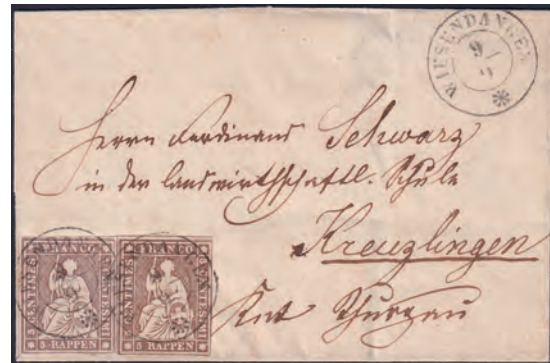 WIESENDANGEN
9
Herrn Ferdinand Schwarz
in der landwirthschaftl. Schule
Kreuzlingen
Knt Thurgau
5 RAPPEN
5 RAPPEN